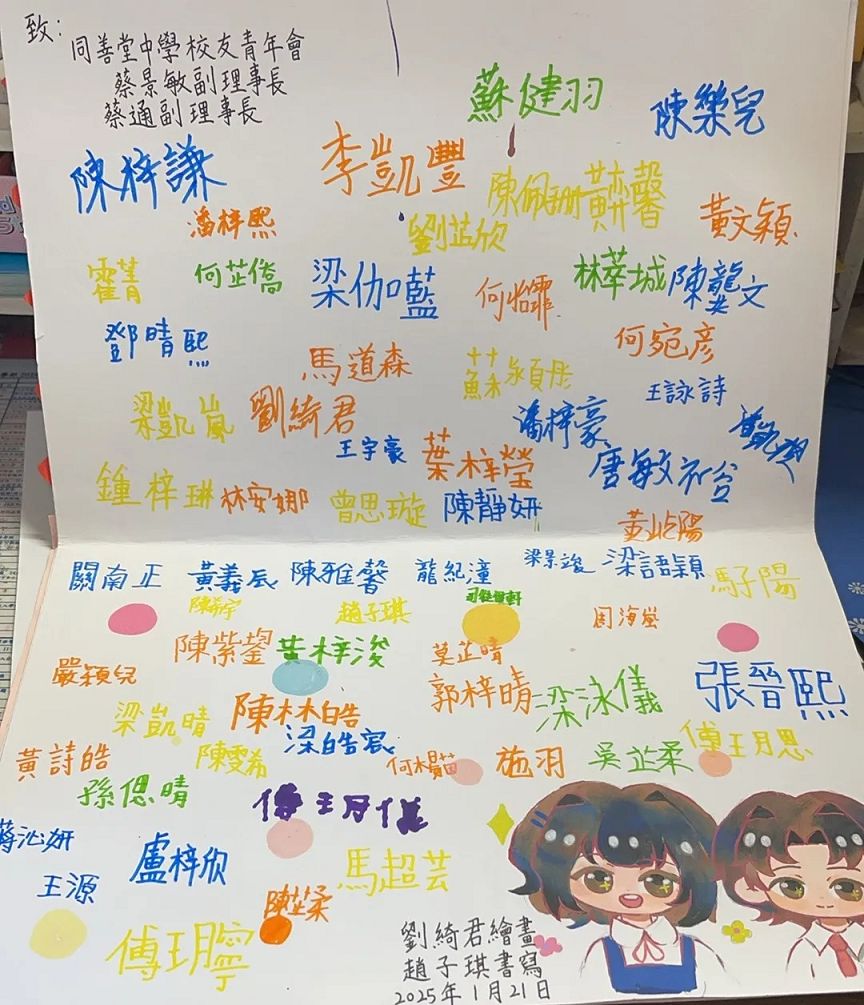 致:
同善堂中學校友青年會
蔡景敏副理事長
蔡通副理事長
蘇健羽
陳樂兒
陳梓謙
李凱豐
陳佩珊
黃弈馨
黃文穎
潘梓熙
劉芷欣
霍菁
何芷僑
梁伽藍
何怡霏
林萃城
陳龑文
鄧晴熙
馬道森
何宛彥
蘇潁彤
王詠詩
梁凱嵐
劉綺君
潘梓豪
王宇豪
葉梓瑩
唐敏
鍾梓琳
林安娜
曾思璇
陳靜妍
黃屾陽
關南正
黃義辰
陳雅馨
龍紀潼
梁景竣
梁語穎
馮子陽
趙子琪
司徒俊軒
周海嵐
陳紫鋆
黃梓浚
莫芷晴
嚴穎兒
郭梓晴
梁泳儀
張晉熙
梁凱晴
陳林皓
梁皓宸
傅玥恩
黃詩皓
陳雯希
施羽
吳芷柔
孫偲晴
傅玥儀
蔣沁妍
盧梓欣
馬超芸
王源
陳芷柔
傅玥寧
劉綺君繪畫
趙子琪書寫
2025年1月21日